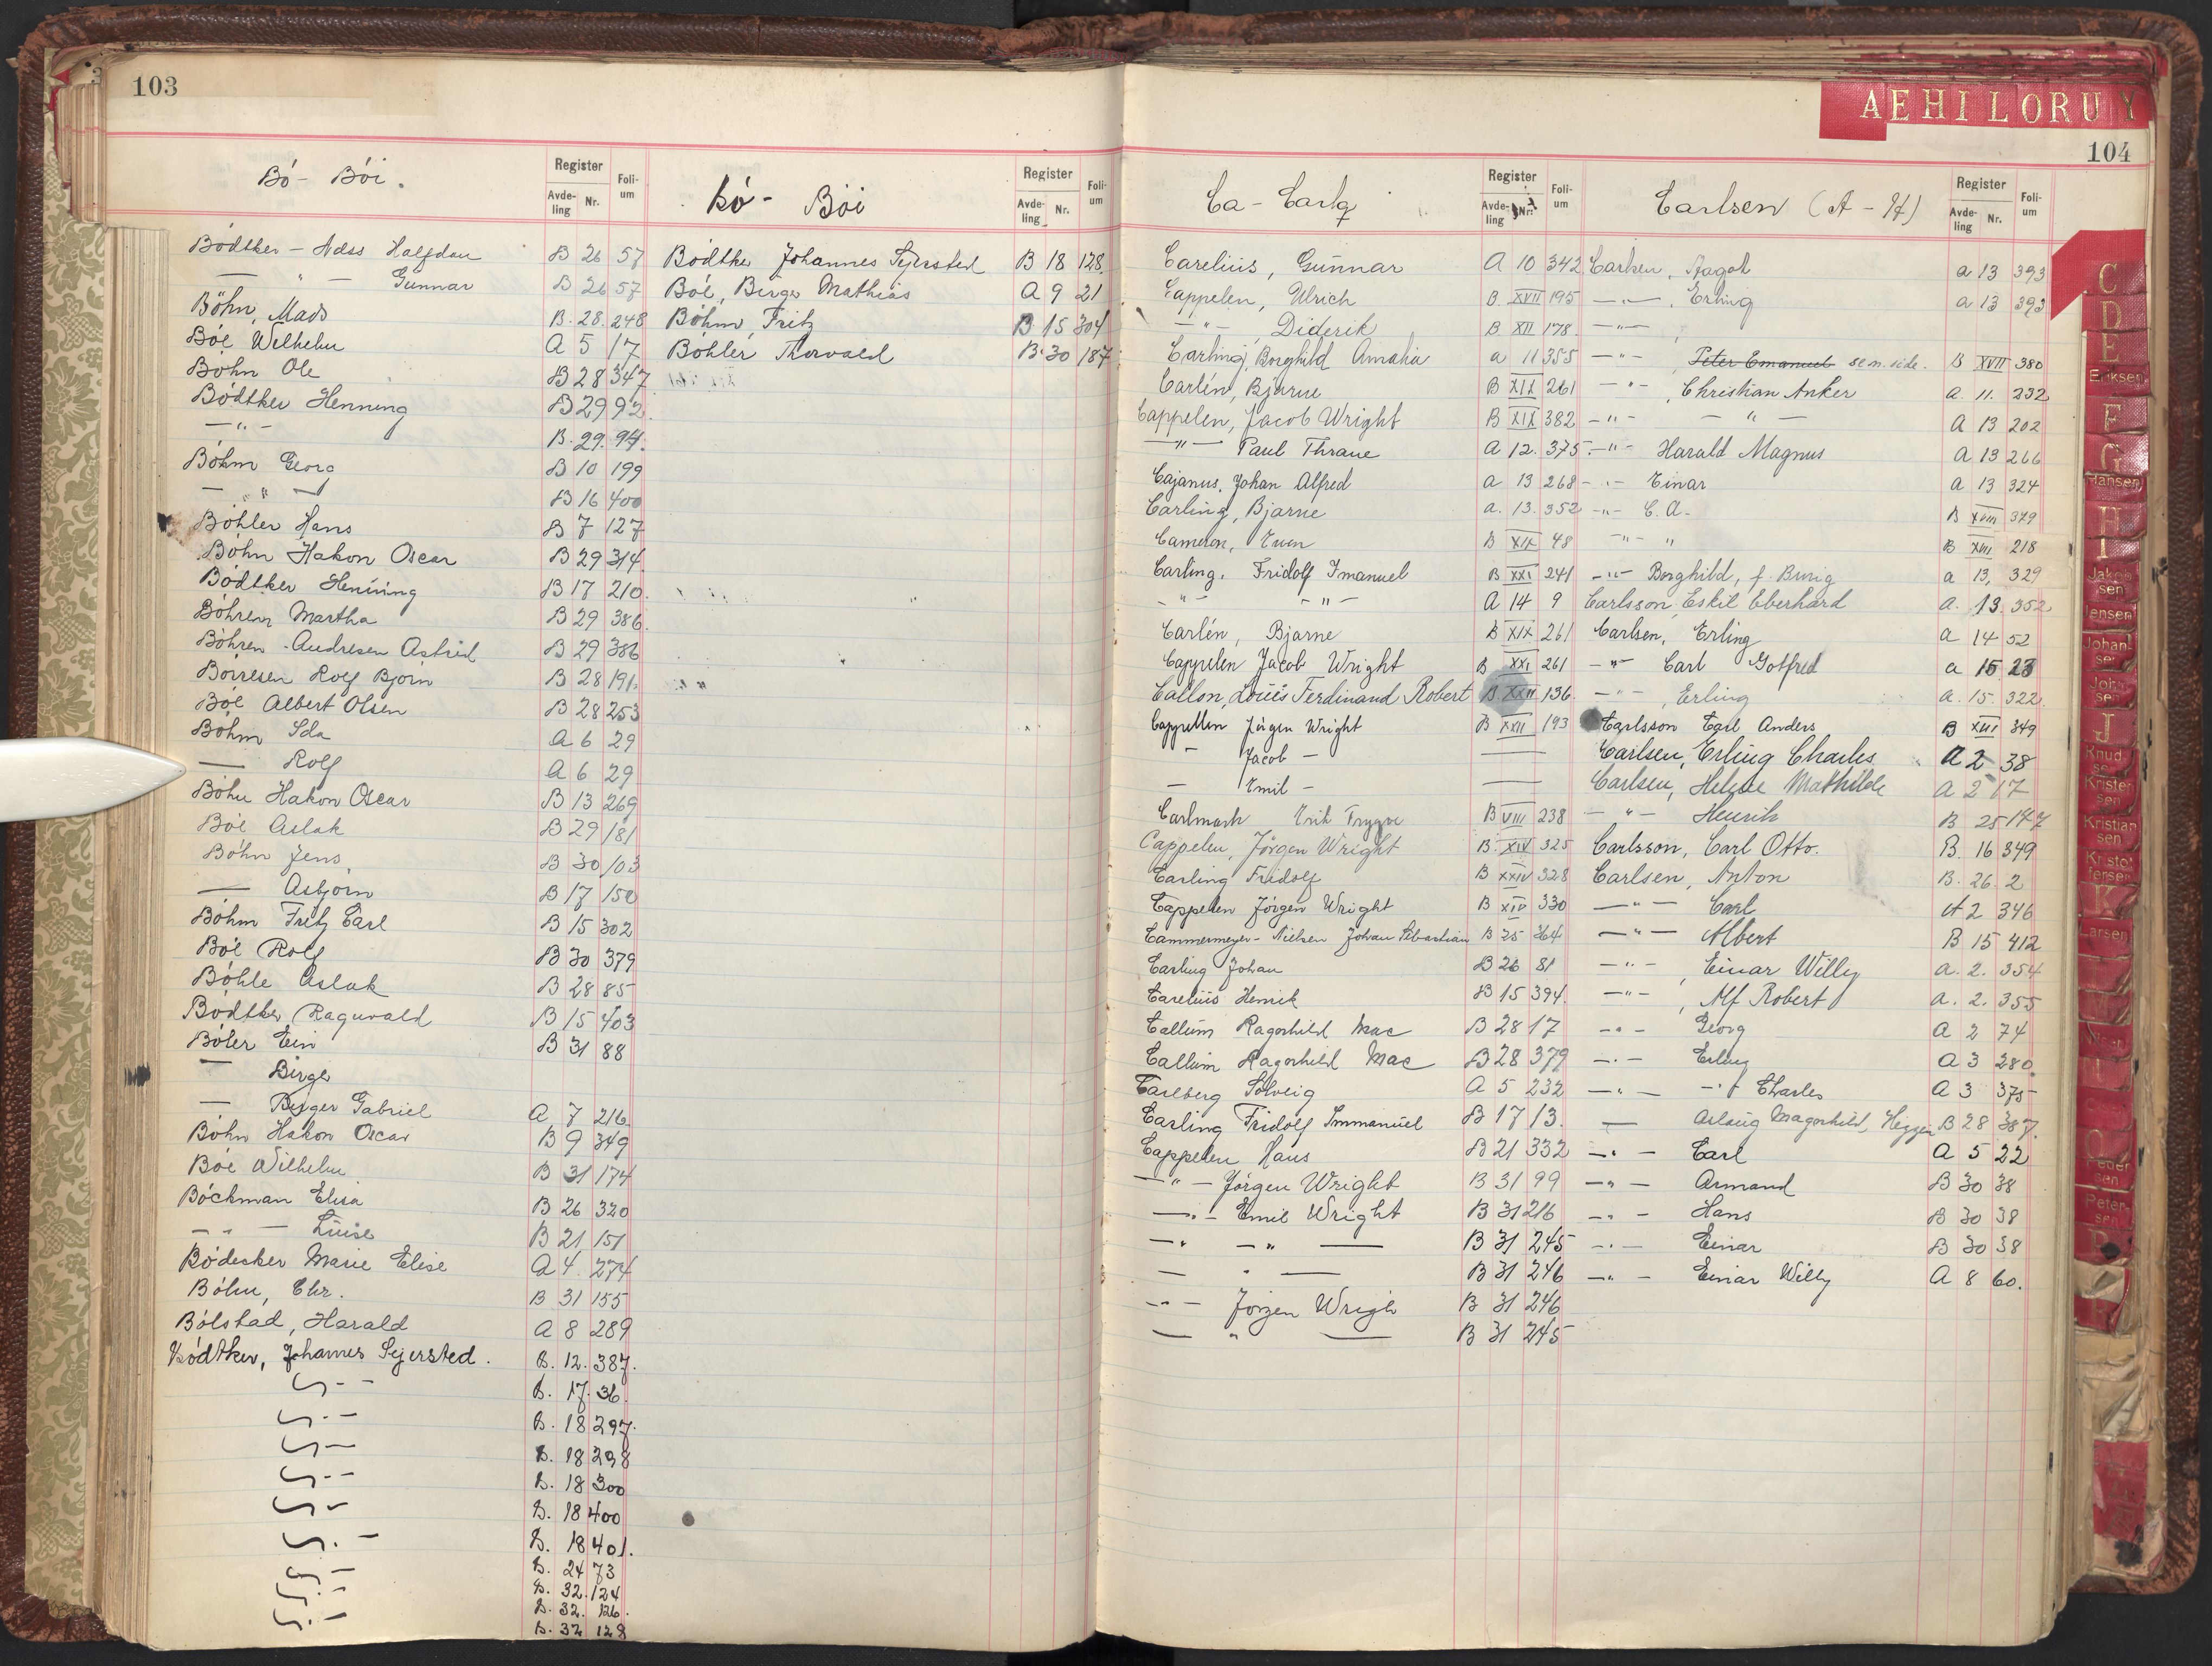 103
Bö- Böi.
Register
Avdeling Nr.
Folium
Bødtker - Næss Halfdan B 26 57
— " — Gunnar B 26 57
Böhn, Mads B. 28. 248
Böe Wilhelm A 5 17
Böhn Ole B 28 347
Bödtker Henning B 29 92
— " — B. 29. 94.
Böhm Georg B 10 199
— " — B 16 400
Böhler Hans B 7 127
Böhn Hakon Oscar B 29 314
Bödtker Henning B 17 210.
Böhren Martha B 29 386.
Böhren - Andresen Astrid B 29 386
Börresen Rolf Björn B 28 191.
Böe Albert Olsen B 28 253
Böhm Ida A 6 29
— Rolf A 6 29
Böhn Hakon Oscar B 13 269
Böe Aslak B 29 181
Böhn Jens B 30 103
— Asbjörn B 17 150
Böhm Fritz Carl B 15 302
Böe Rolf B 30 379
Böhle Aslak B 28 85
Bödtker Ragnvald B 15 403
Böler Ein B 31 88
— Birger
— Birger Gabriel A 7 216
Böhn Hakon Oscar B 9 349
Böe Wilhelm B 31 174
Böckman Elisa B 26 320
— " — Luise B 21 151
Bödecker Marie Elise A 4. 274
Böhn, Chr. B 31 155
Bölstad, Harald A 8 289
Bödtker, Johannes Sejersted. B. 12. 387.
— " — B. 17. 36.
— " — B. 18 297.
— " — B. 18 298
— " — B. 18 300
— " — B. 18 400
— " — B. 18 401.
— " — B. 24 73
— " — B. 32. 124
— " — B. 32. 126.
— " — B. 32 128
Bö- Böi
Register
Avdeling Nr.
Folium
Bödtker Johannes Sejersted B 18 128.
Böe, Birger Mathias A 9 21
Böhm, Fritz B 15 304
Böhler Thorvald B 30 187
AEHILORUY
104
Ca - Carlq
Register
Avdeling Nr.
Folium
Carelius, Gunnar A 10 342
Cappelen, Ulrich B. XVII 195
— " — , Diderik B XII 178
Carling, Borghild Amalia a 11 355
Carlén, Bjarne B XIX 261
Cappelen, Jacob Wright B XIX 382
— " — Paul Thrane A 12. 375
Cajanus, Johan Alfred a 13 268
Carling, Bjarne a. 13. 352
Cameron, Ewen B XIX 48
Carling, Fridolf Imanuel B XXI 241
— " — — " — A 14 9
Carlén, Bjarne B XIX 261
Cappelen Jacob Wright B XXI 261
Callon, Louis Ferdinand Robert B XXII 136.
Cappellen Jörgen Wright B XXII 193
— Jacob — ——
— Emil — ——
Carlmark Erik Tryggve B VIII 238
Cappelen, Jörgen Wright B. XIV 325
Carling Fridolf B XXIV 328
Cappelen Jörgen Wright B XIV 330
Cammermeyer - Nielsen Johan Sebastian B 25 264
Carling Johan B 26 81
Carelius Henrik B 15 394.
Callum Ragnhild Mac B 28 17
Callum Ragnhild Mac B 28 379
Carlberg Solveig A 5 232
Carling Fridolf Immanuel B 17 13.
Cappelen Hans B 21 332
— " — Jörgen Wright B 31 99
— " — Emil Wright B 31 216
— " — " — B 31 245
— " — B 31 246
— " — Jörgen Wrigh B 31 246
— " — B 31 245
Carlsen (A - H)
Register
Avdeling Nr.
Folium
Carlsen, Aagot a 13 393
— " — , Erling a 13 393
— " — ,
— " — , Peter Emanuel se n. side. B XVII 380
— " — , Christian Anker a. 11. 232
— " — — " — A 13 202
— " — Harald Magnus A 13 266
— " — Einar a 13 324
— " — C. A. B XVIII 379
— " — " B XVIII 218
— " — Borghild, f. Burig a 13, 329
Carlsson Eskil Eberhard a. 13. 352
Carlsen, Erling a 14 52
— " — Carl Gotfred a 15 23
— " — , Erling a. 15. 322.
Carlsson Carl Anders B XVI 349
Carlsen, Erling Charles A 2 38
Carlsen, Helene Mathilde A 2 17
— " — Henrik B 25 147
Carlsson, Carl Otto. B. 16 349
Carlsen, Anton B. 26. 2
— " — Carl A 2 346
— " — Albert B 15 412
— " — , Einar Willy a. 2. 354
— " — , Alf Robert a. 2. 355
— " — Georg A 2 74
— " — Erling A 3 280.
— " — — " — Charles A 3 375
— Aslaug Magnhild, Heggen B 28 387.
— " — Carl A 5 22
— " — Armand B 30 38
— " — Hans B 30 38
— " — Einar B 30 38
— " — Einar Willy A 8 60.
C
D
E
Eriksen
F
G
Hansen
H
I
Jakobsen
Jensen
Johansen
Johnsen
J
Knudsen
Kristensen
Kristiansen
Kristoffersen
K
Larsen
Pedersen
Petersen
P